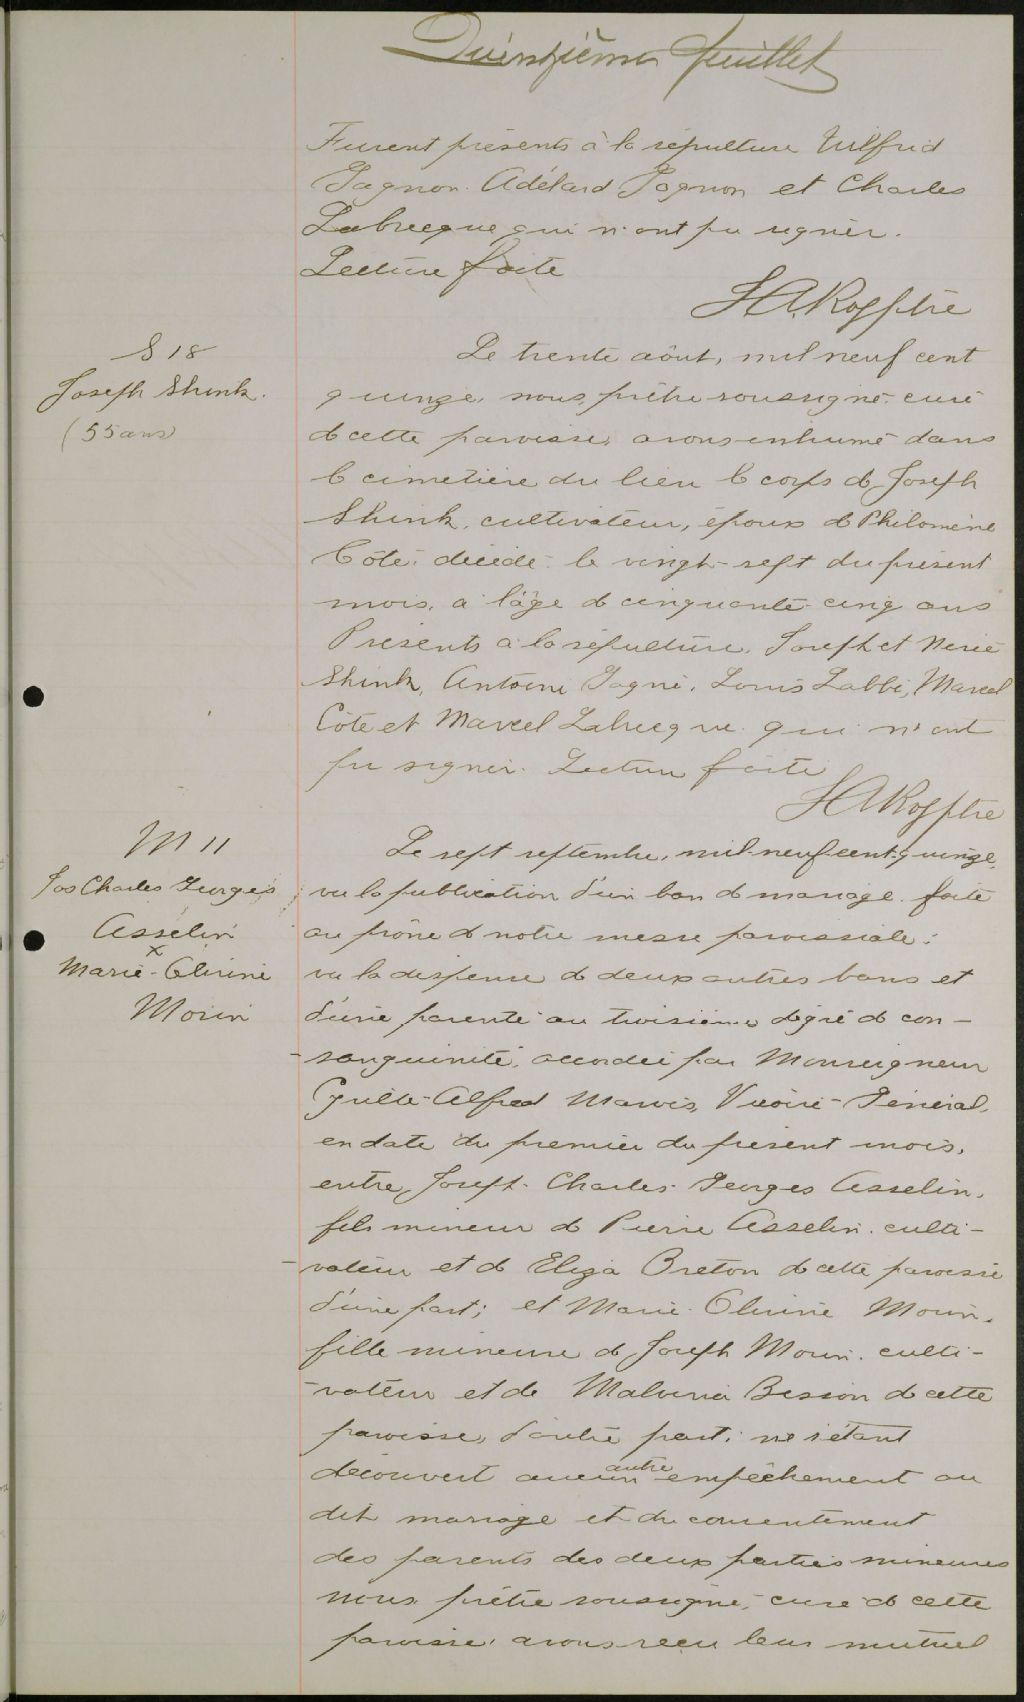 Quinzième feuillet
Furent présents à la sépulture Wilfrid
Gagnon. Adélard Gagnon et Charles
Labrecque qui n'ont pu signer.
Lecture faite
S 18
Joseph Shink.
(55 ans)
Le trente août, mil neuf cent
quinze, nous, prêtre soussigné, curé
de cette paroisse, avons inhumé dans
le cimetière du lieu le corps de Joseph
Shink, cultivateur, époux de Philomène
Côté, décédé le vingt-sept du présent
mois, à l'âge de cinquante-cinq ans
Présents à la sépulture, Joseph et
Shink, Antoine Gagné, Louis Labbé, Marcel
Côté et Marcel Labrecque qui n'ont
pu signer. Lecture faite
M 11
Jos Charles Georges
Asselin
x
Marie-Olivine
Morin
Le sept septembre, mil-neuf-cent-quinze,
vu la publication d'un ban de mariage faite
au prône de notre messe paroissiale;
vu la dispense de deux autres bans et
d'une parenté au troisième degré de con-
-sanguinité, accordée par Monseigneur
Cyrille-Alfred Marois, Vicaire-Général,
en date du premier du présent mois,
entre Joseph-Charles-Georges Asselin,
fils mineur de Pierre Asselin, culti-
-vateur et de Eliza Breton de cette paroisse
d'une part; et Marie-Olivine Morin,
fille mineure de Joseph Morin, culti-
-vateur et de Malvina Bisson de cette
paroisse, d'autre part; ne s'étant
découvert aucun autre empêchement au
dit mariage et du consentement
des parents des deux parties mineures
nous, prêtre soussigné, curé de cette
paroisse, avons reçu leur mutuel